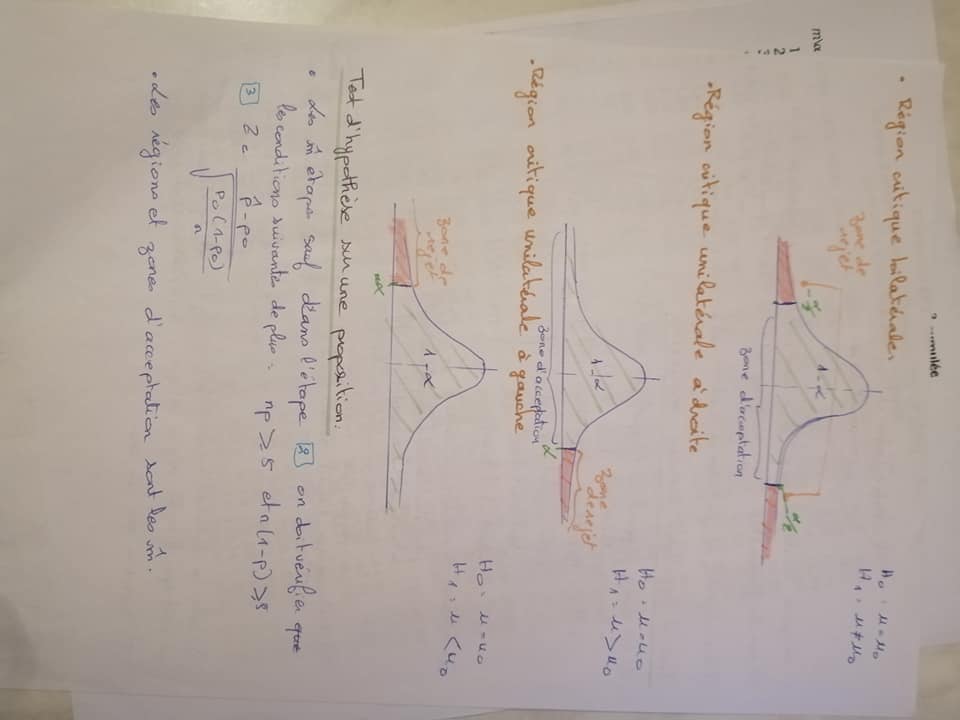 mulée
• Région critique bilatérale.
H0 : μ = μ0
H1 : μ ≠ μ0
zone de
rejet
m\α
1
2
1-α
-α/2
α/2
zone d'acceptation
• Région critique unilatérale à droite
H0 : μ = μ0
H1 = μ > μ0
1-α
zone
de rejet
α
zone d'acceptation
• Région critique unilatérale à gauche
H0 : μ = μ0
H1 = μ < μ0
zone de
rejet
1-α
Test d'hypothèse sur une proposition.
• Les m̂ étapes sauf dans l'étape 2 on doit vérifier que
les conditions suivantes de plus : np ≥ 5 et n(1-p) ≥ 5
3 Z = (p̂ - p0) / √(p0(1-p0)/n)
• Les régions et zones d'acceptation sont les m̂.